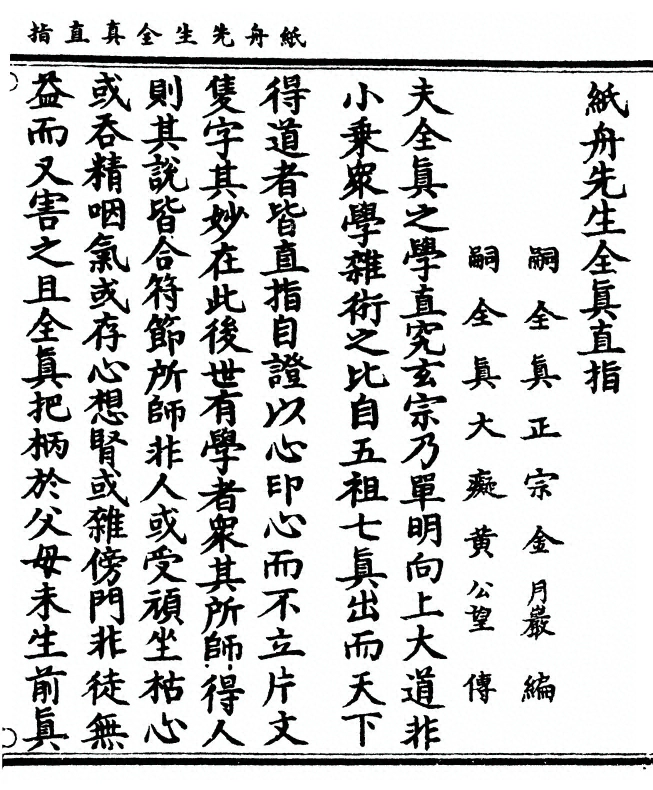 紙舟先生全真直指
紙舟先生全眞直指
嗣全眞正宗金月巖編
嗣全眞大癡黃公望傳
夫全眞之學直究玄宗乃單明向上大道非
小乘衆學雜術之比自五祖七眞出而天下
得道者皆直指自證以心印心而不立片文
隻字其妙在此後世有學者衆其所師得人
則其說皆合符節所師非人或受頑坐枯心
或吞精咽氣或存心想腎或雜傍門非徒無
益而又害之且全眞把柄於父母未生前眞